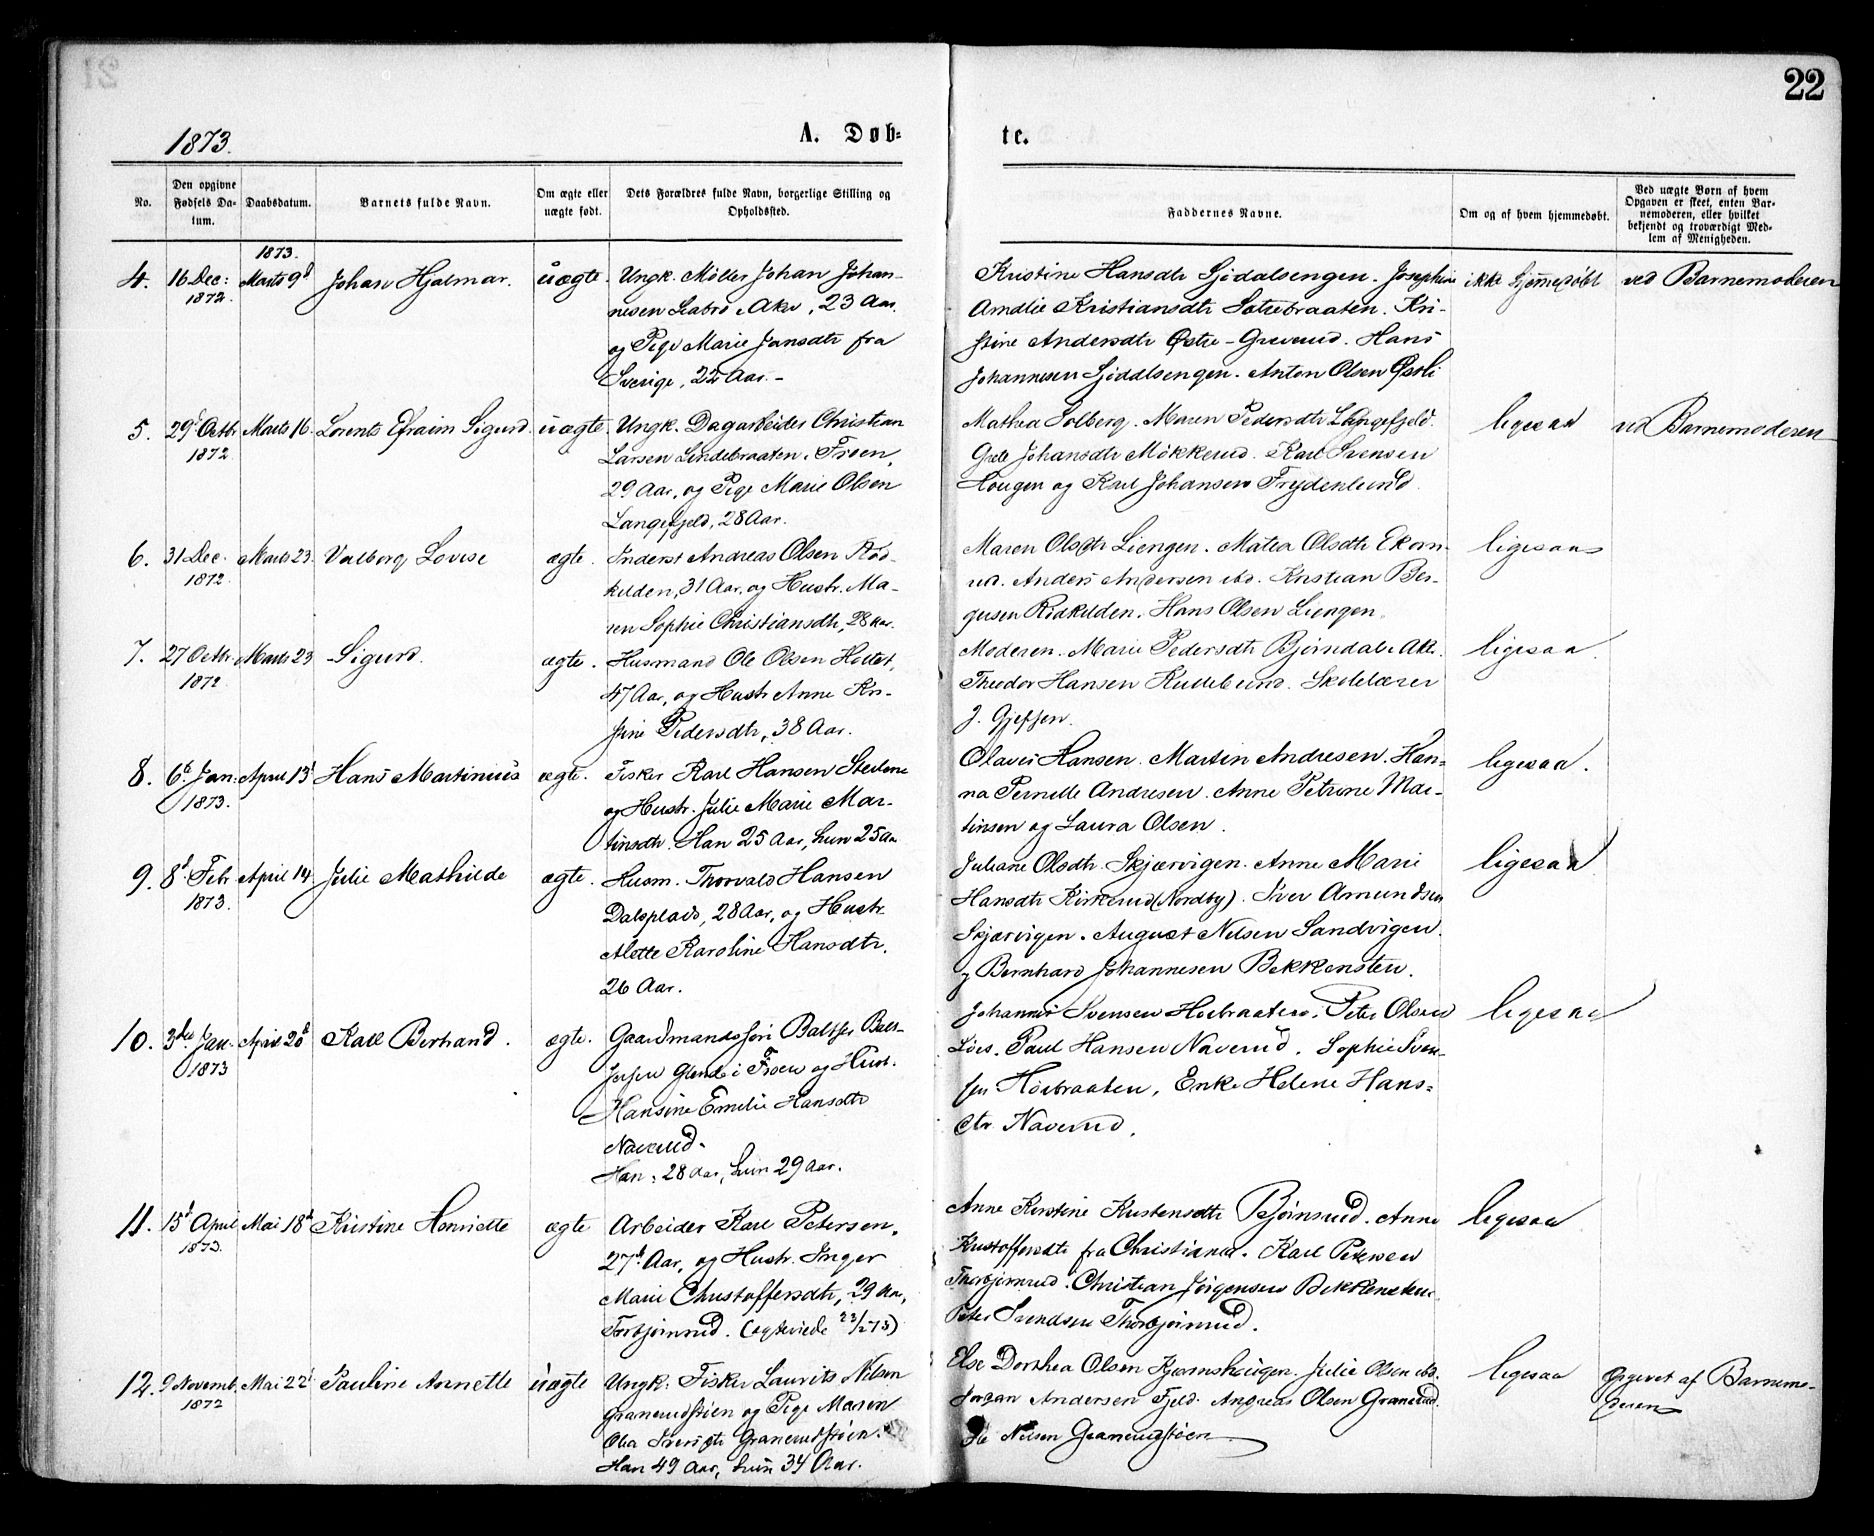 22
1873.
A. Døb-
te.
No.
Den opgivne Fødsels Da-
tum.
Daabsdatum.
Barnets fulde Navn.
Om ægte eller
uægte født.
Dets Forældres fulde Navn, borgerlige Stilling og
Opholdssted.
Faddernes Navne.
Om og af hvem hjemmedøbt.
Ved uægte Børn af hvem
Opgaven er skeet, enten Bar-
nemoderen, eller hvilket
bekjendt og troværdigt Med-
lem af Menigheden.
1873.
4. 16 Dec: 1872. Marts 9d Johan Hjalmar. uægte. Ungk. Møller Johan Johan-
nesen Aker, 23 Aar.
og Pige Marie Jansdtr fra
Sverige, 22 Aar.-
Kristine Hansdtr Sjødalsengen. Josephine
Amalie Kristiansdtr Sætrebraaten. Kri-
stine Andersdtr Østre-Greverud. Hans
Johannesen Sjødalsengen. Anton Olsen Østli
ikke hjemmedøbt
ved Barnemoderen
5. 29d Octbr 1872. Marts 16. Lorents Efraim Sigurd. uægte. Ungk. Dagarbeider Christian
Larsen Lindebraaten i Froen,
29 Aar, og Pige Marie Olsen
Langefjeld, 28 Aar.
Mathea Solberg. Maren Pedersdtr Langefjeld.
Johansdtr Møkkerud. Karl Svensen
Hougen og Karl Johansen Frydenlund.
ligesaa
ved Barnemoderen
6. 31 Dec. 1872. Marts 23. Valborg Lovise ægte. Inderst Andreas Olsen Rød-
kilden, 31 Aar, og Hustr. Ma-
ren Sophie Christiansdtr, 28 Aar.
Maren Olsdtr Liengen. Matea Olsdtr Ekorn-
rud. Anders Andersen ibd. Kristian Ber-
gersen Rødkilden. Hans Olsen Liengen.
ligesaa
7. 27 Octbr 1872. Marts 23 Sigurd. ægte. Husmand Ole Olsen
47 Aar, og Hustr. Anne Kri-
stine Pedersdtr, 38 Aar.
Moderen. Marie Pedersdtr Bjørndal i Aker.
Theodor Hansen Kullebund. Skolelærer
J. Gjefsen.
ligesaa.
8. 6d Jan: 1873. April 13d Hans Martinius ægte. Fisker Karl Hansen Steilene
og Hustr. Julie Marie Mar-
tinsdtr. Han 25 Aar, hun 25 Aar
Olaves Hansen. Martin Andresen. Han-
na Pernille Andresen. Anne Petrine Mar-
tinsen og Laura Olsen.
ligesaa.
9. 8d Febr 1873. April 14. Julie Mathilde ægte. Husm. Thorvald Hansen
Dalsplads, 28 Aar, og Hustr.
Alette Karoline Hansdtr.
26 Aar.
Juliane Olsdtr. Skjærvigen. Anne Marie
Hansdtr Kirkerud (Nordby). Iver Amundsen
Skjærvigen. August Nilsen Sandvigen.
og Bernhard Johannesen Bekkensten.
ligesaa
10. 3die Jan. 1873 April 20d Karl Bertrand. ægte. Gaardmandssøn Baltser Balt-
sersen Glende i Froen og Hust.
Hansine Emilie Hansdtr
Naverud.
Han: 28 Aar, hun 29 Aar.
Johannes Svensen Høibraaten. Peter Olsen
Løes. Paul Hansen Naverud. Sophie Sven-
sen Høibraaten, Enke Helene Hans-
dtr Naverud.
ligesaa
11. 15d April 1873. Mai 18d Kristine Henriette ægte Arbeider Karl Petersen,
27d Aar, og Hustr. Inger
Marie Christoffersdtr, 29 Aar,
Torbjørnrud. (ægteviede 23/2 73)
Anne Kirstine Kristensdtr Bjørnsrud. Anne
Kristoffersdtr fra Christiania. Karl Petersen
Thorbjørnrud. Christian Jørgensen Bekkensten.
Peter Svendsen Thorbjørnrud.
ligesaa
12. 9 Novemb. 1872 Mai 22d Pauline Annette uægte Ungk: Fisker Laurits Nilsen
Granerudstøen og Pige Maren
Olea Iversdtr Granerudstøen.
Han 49 Aar, hun 34 Aar.
Else Dorthea Olsen Kjærnshaugen. Julie Olsen ibd.
Johan Andersen Fjeld. Andreas Olsen Granerud.
Ole Nilsen Granerudstøen
ligesaa
Opgivet af Barnemo-
deren